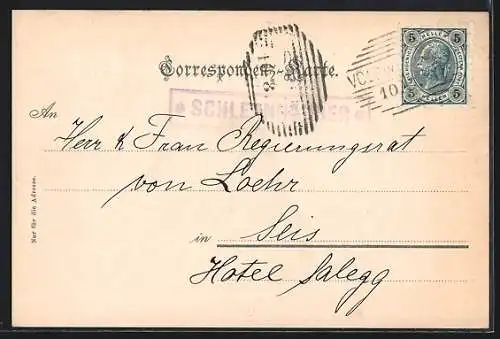 5 HELLER 5
Correspondenz-Karte.
SCHLERNHÄUSER
VÖLS
10
5 5
An
Herr & Frau Regierungsrat
von Loehr
in Seis
Hotel Salegg
Nur für die Adresse.